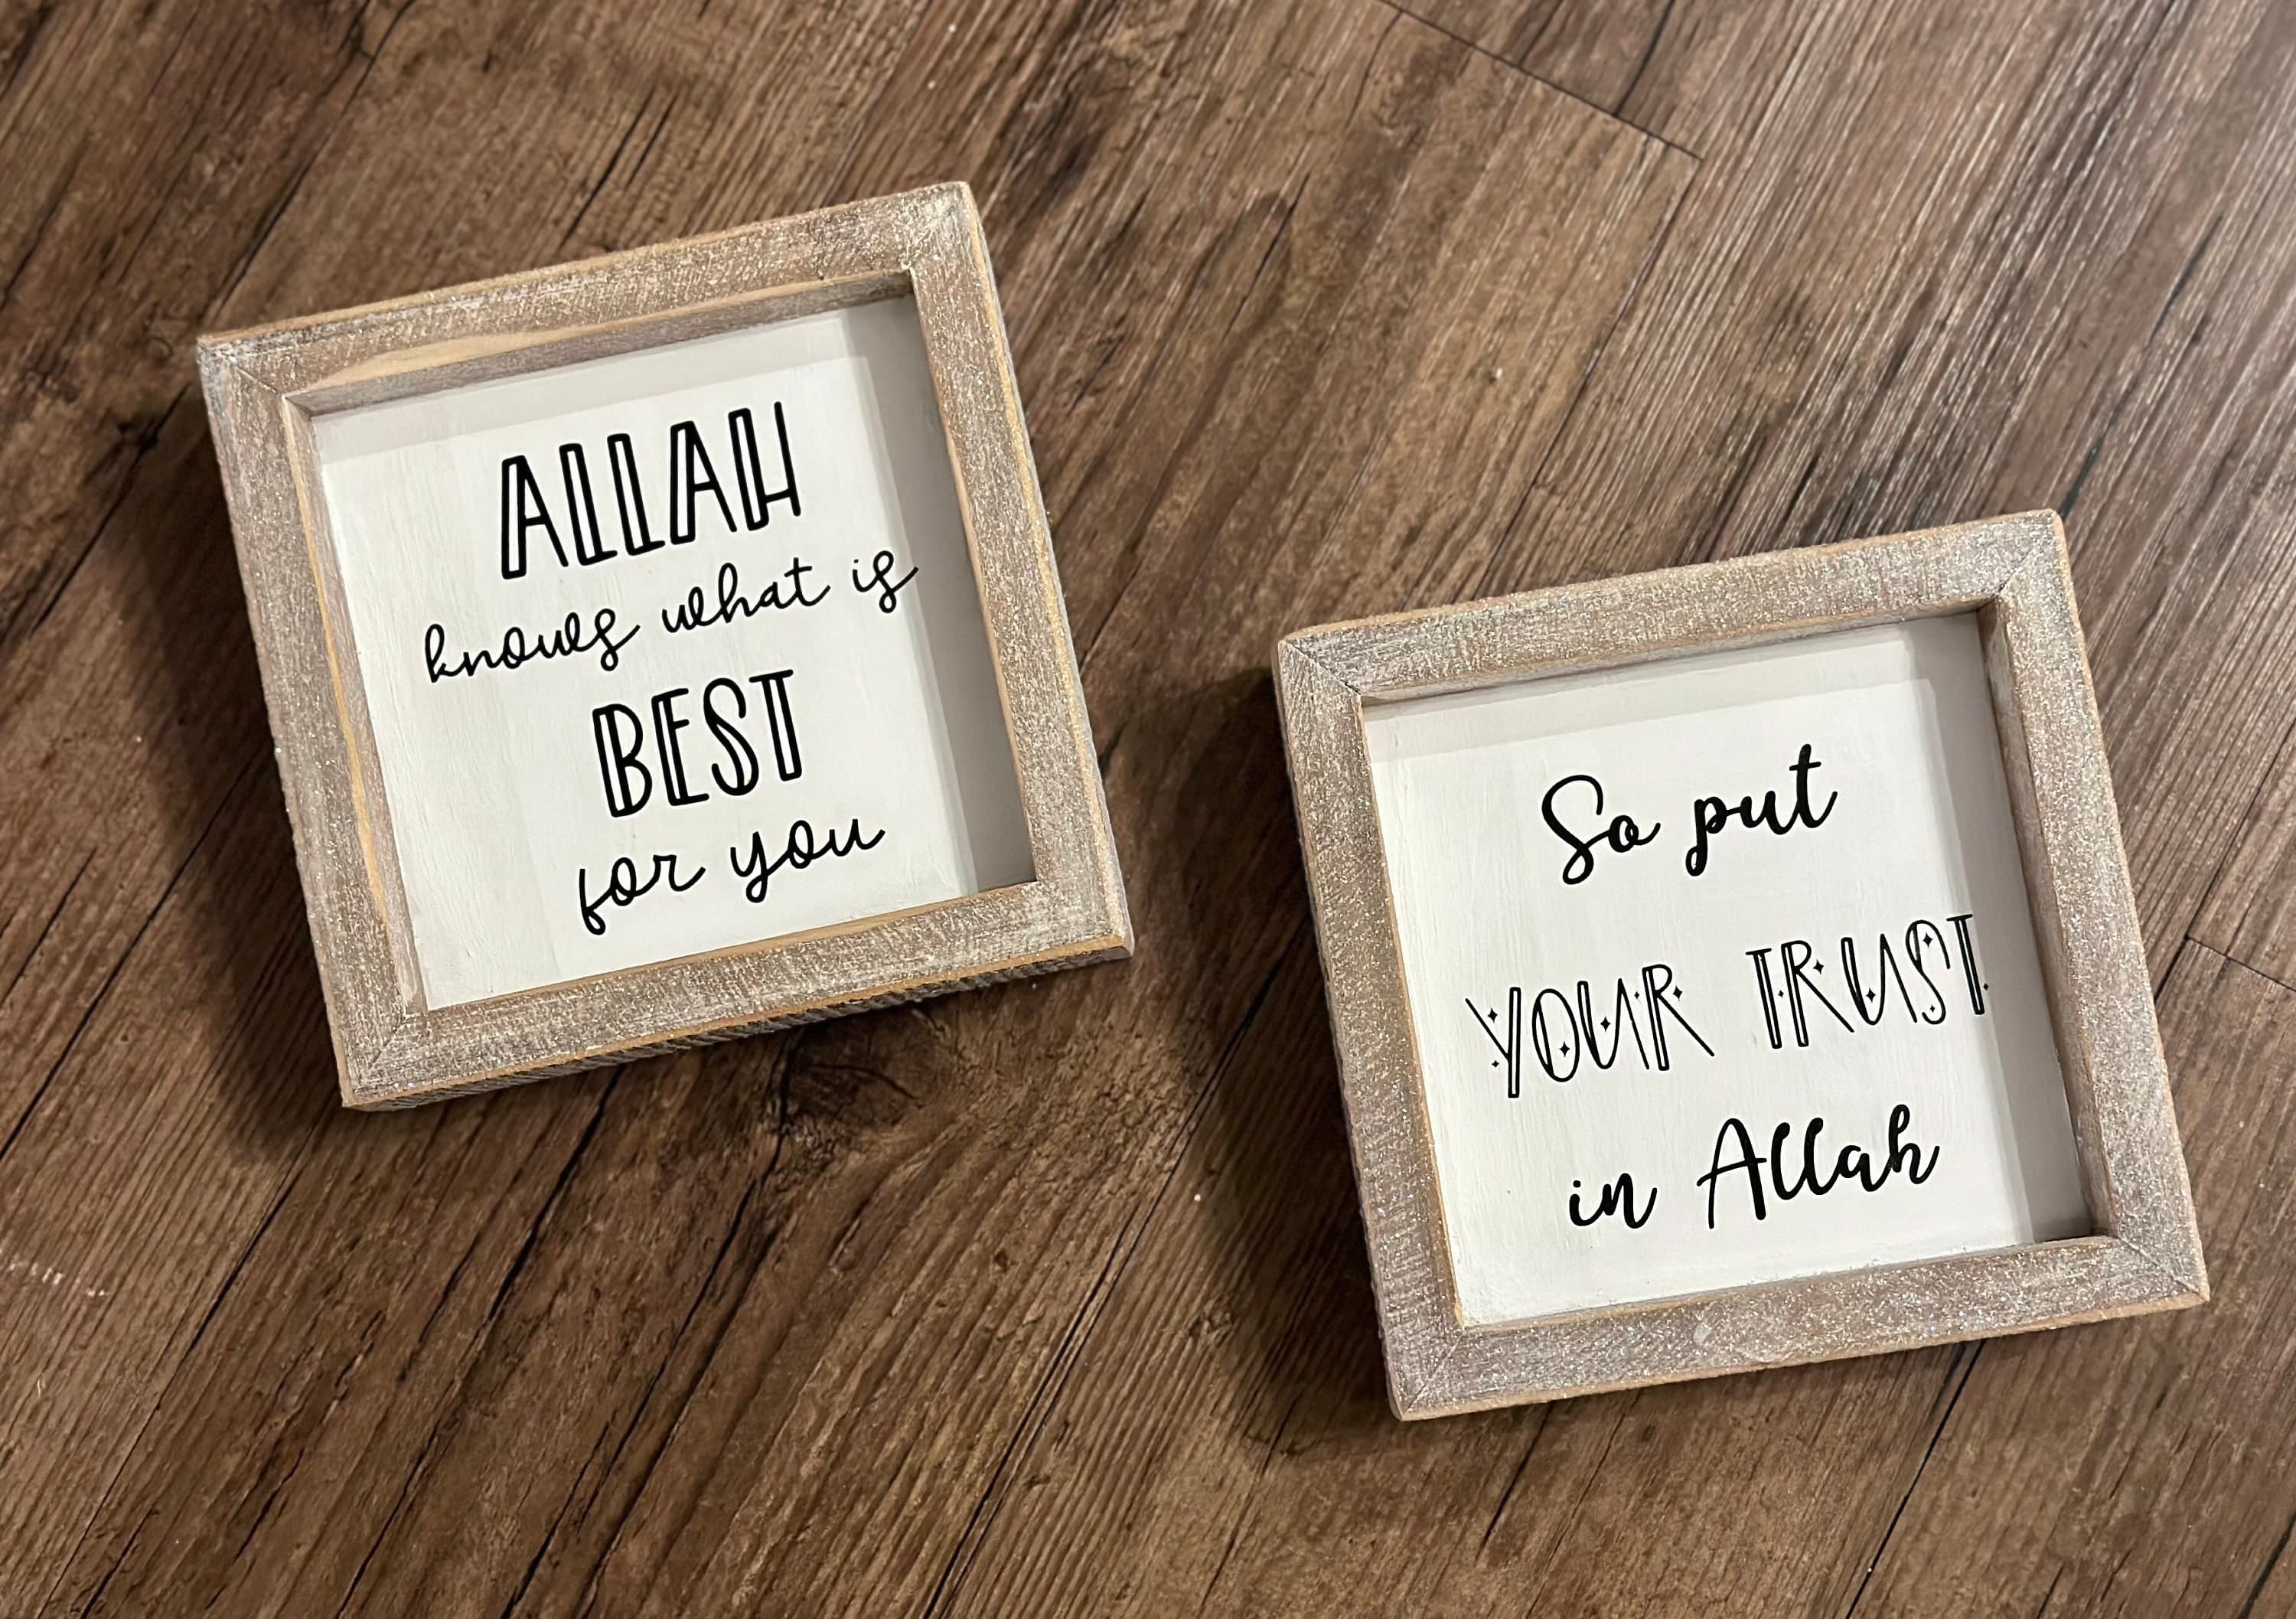 ALLAH
knows what is
BEST
for you
So put
YOUR TRUST
in Allah